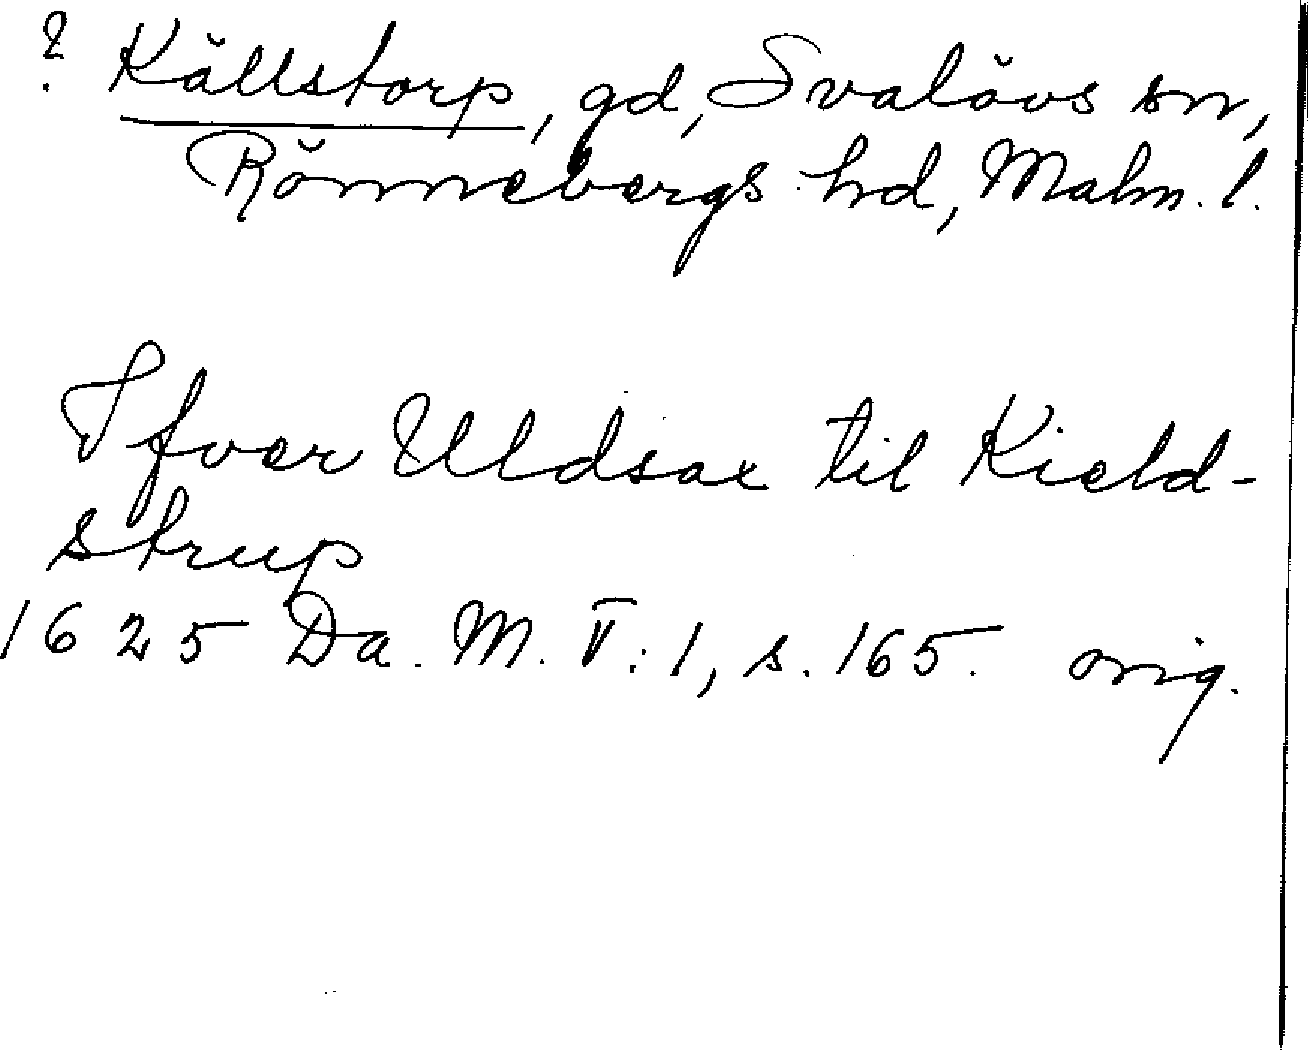 ? Källstorp, gd, Svalövs sn,
Rönnebergs hd, Malm. l.
Ifver Uldsax til Kield-
strup
1625 Da. M. V:1, s. 165. orig.